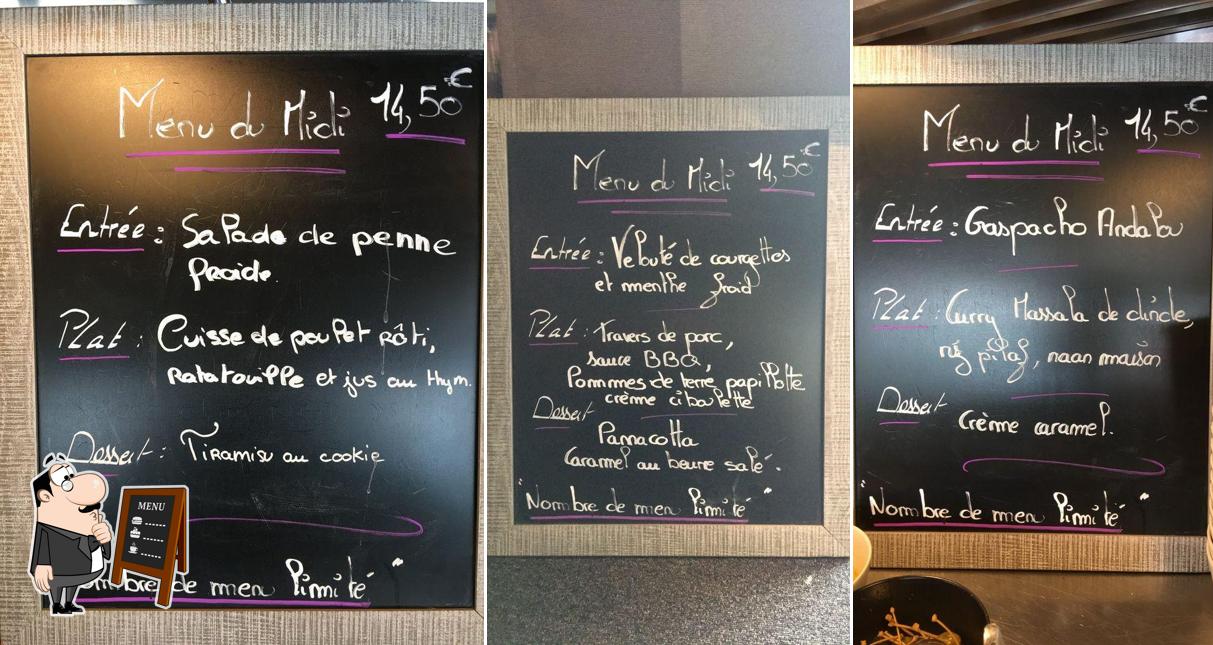 Menu du Midi 14,50€
Entrée : Salade de penne
froide.
Plat : Cuisse de poulet rôti,
ratatouille et jus au thym.
Dessert : Tiramisu au cookie
MENU
Nombre de menu limité"
Menu du Midi 14,50€
Entrée : Velouté de courgettes
et menthe froid
Plat : Travers de porc,
sauce BBQ,
Pommes de terre papillotte
crème ciboulette
Dessert
Panacotta
Caramel au beurre salé.
"Nombre de menu limité"
Menu du Midi 14,50€
Entrée : Gaspacho Andalou
Plat : Curry Massala de dinde,
riz pilaf, naan maison
Dessert
Crème caramel.
"Nombre de menu limité"